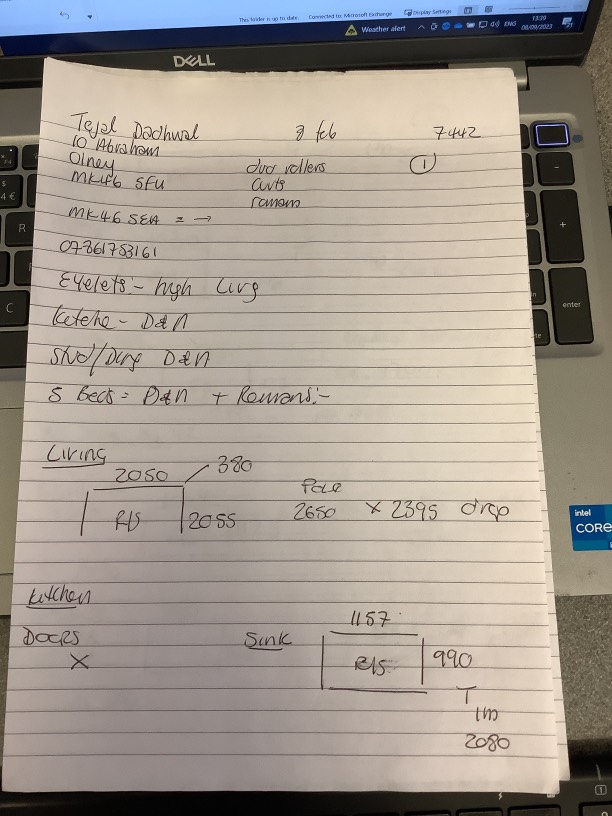 This folder is up to date
Connected to: Microsoft Exchange
Display Settings
Weather alert
ENG
13:39
08/09/2023
DELL
Tejal Dadhwal
8 feb
7442
10 Abraham
Olney
duo rollers
1
MK46 5FU
curts
romans
MK46 5EA = →
07861783161
Eyelets:- high Livg
Ketche - D&N
Stud/Ding D&N
5 Beds = D&N + Romans:-
Living
2050
380
R/S
2055
Pole
2650 x 2395 drop
Kitchen
DOORS
X
Sink
1157
R/S
990
T
1m
2080
R
C
enter
intel
CORE